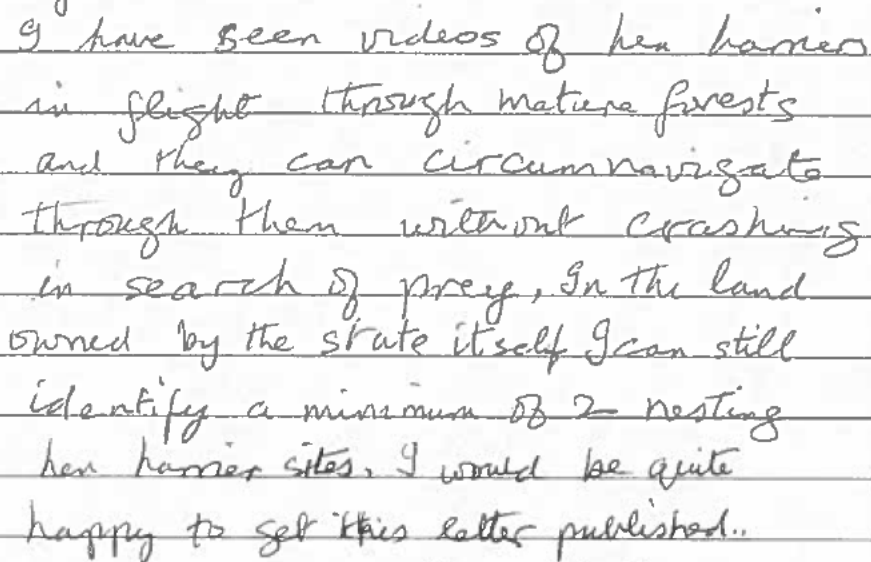 I have seen videos of hen harriers
in flight through mature forests
and they can circumnavigate
through them without crashing
in search of prey, In the land
owned by the state itself I can still
identify a minimum of 2 nesting
hen harrier sites. I would be quite
happy to get this letter published..